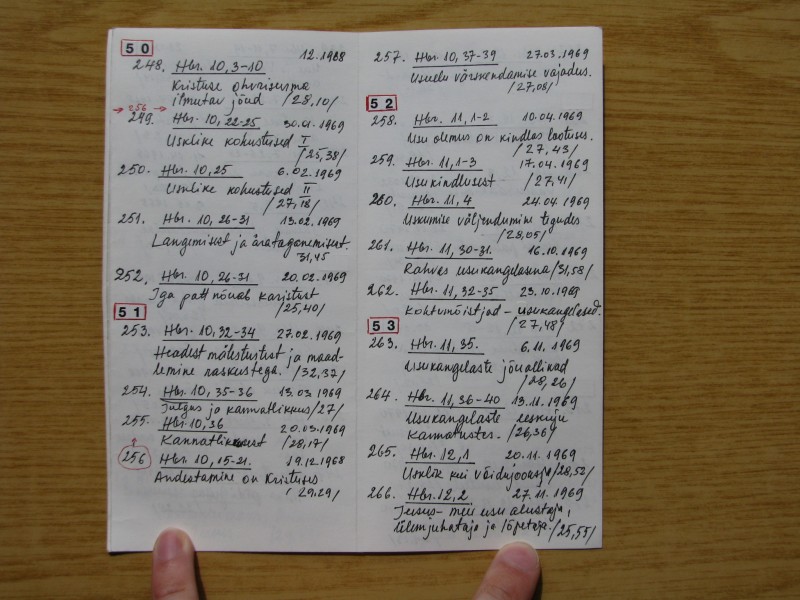 50
248. Hbr. 10,3-10 12.1968
Kristuse ohvrisurma
ilmutav jõud /28,10/
→ 256 →
249. Hbr. 10, 22-25 30.01.1969
Usklike kohustused I
/25,38/
250. Hbr. 10,25 6.02.1969
Usklike kohustused II
/27,18/
251. Hbr. 10, 26-31 13.02.1969
Langemisest ja ärataganemisest.
31,45
252. Hbr. 10, 26-31 20.02.1969
Iga patt nõuab karistust
/25,40/
51
253. Hbr. 10, 32-34 27.02.1969
Headest mälestustest ja maad-
lemine raskustega. /32,37/
254. Hbr. 10, 35-36 13.03.1969
Julgus ja kannatlikkus /27/
255. Hbr. 10,36 20.03.1969
Kannatlikkusest /28,17/
256 Hbr. 10, 15-21. 19.12.1968
Andestamine on Kristuses
/29,29/
257. Hbr. 10, 37-39 27.03.1969
Usuelu värskendamise vajadus.
/27,08/
52
258. Hbr. 11, 1-2 10.04.1969
Usu olemus on kindlas lootuses.
/27,43/
259. Hbr. 11, 1-3 17.04.1969
Usukindlusest /27,41/
260. Hbr. 11, 4 24.04.1969
Uskumise väljendumine tegudes
/28,05/
261. Hbr. 11, 30-31. 16.10.1969
Rahvas usukangelasena /31,58/
262. Hbr. 11, 32-35 23.10.1969
Kohtumõistjad - usukangelased.
/27,48/
53
263. Hbr. 11, 35. 6.11.1969
Usukangelaste jõuallikad
/28,26/
264. Hbr. 11, 36-40 13.11.1969
Usukangelaste eeskuju
kannatustes. /26,36/
265. Hbr. 12,1 20.11.1969
Usklik kui võidujooksja /28,52/
266. Hbr. 12,2 27.11.1969
Jeesus - meie usu alustaja,
ülemjuhataja ja lõpetaja. /25,55/